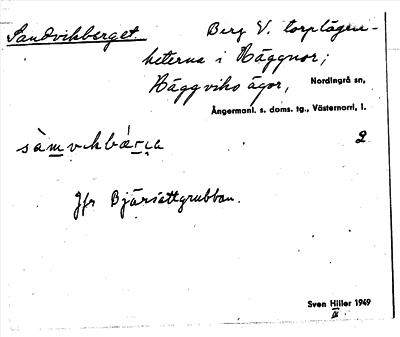 Sandvikberget. Berg V. torplägen-
heterna i Häggnor;
Häggviks ägor, Nordingrå sn,
Ångermanl. s. doms. tg., Västernorrl. l.
2
Jfr Bjärsättgrubban.
Sven Hiller 1949